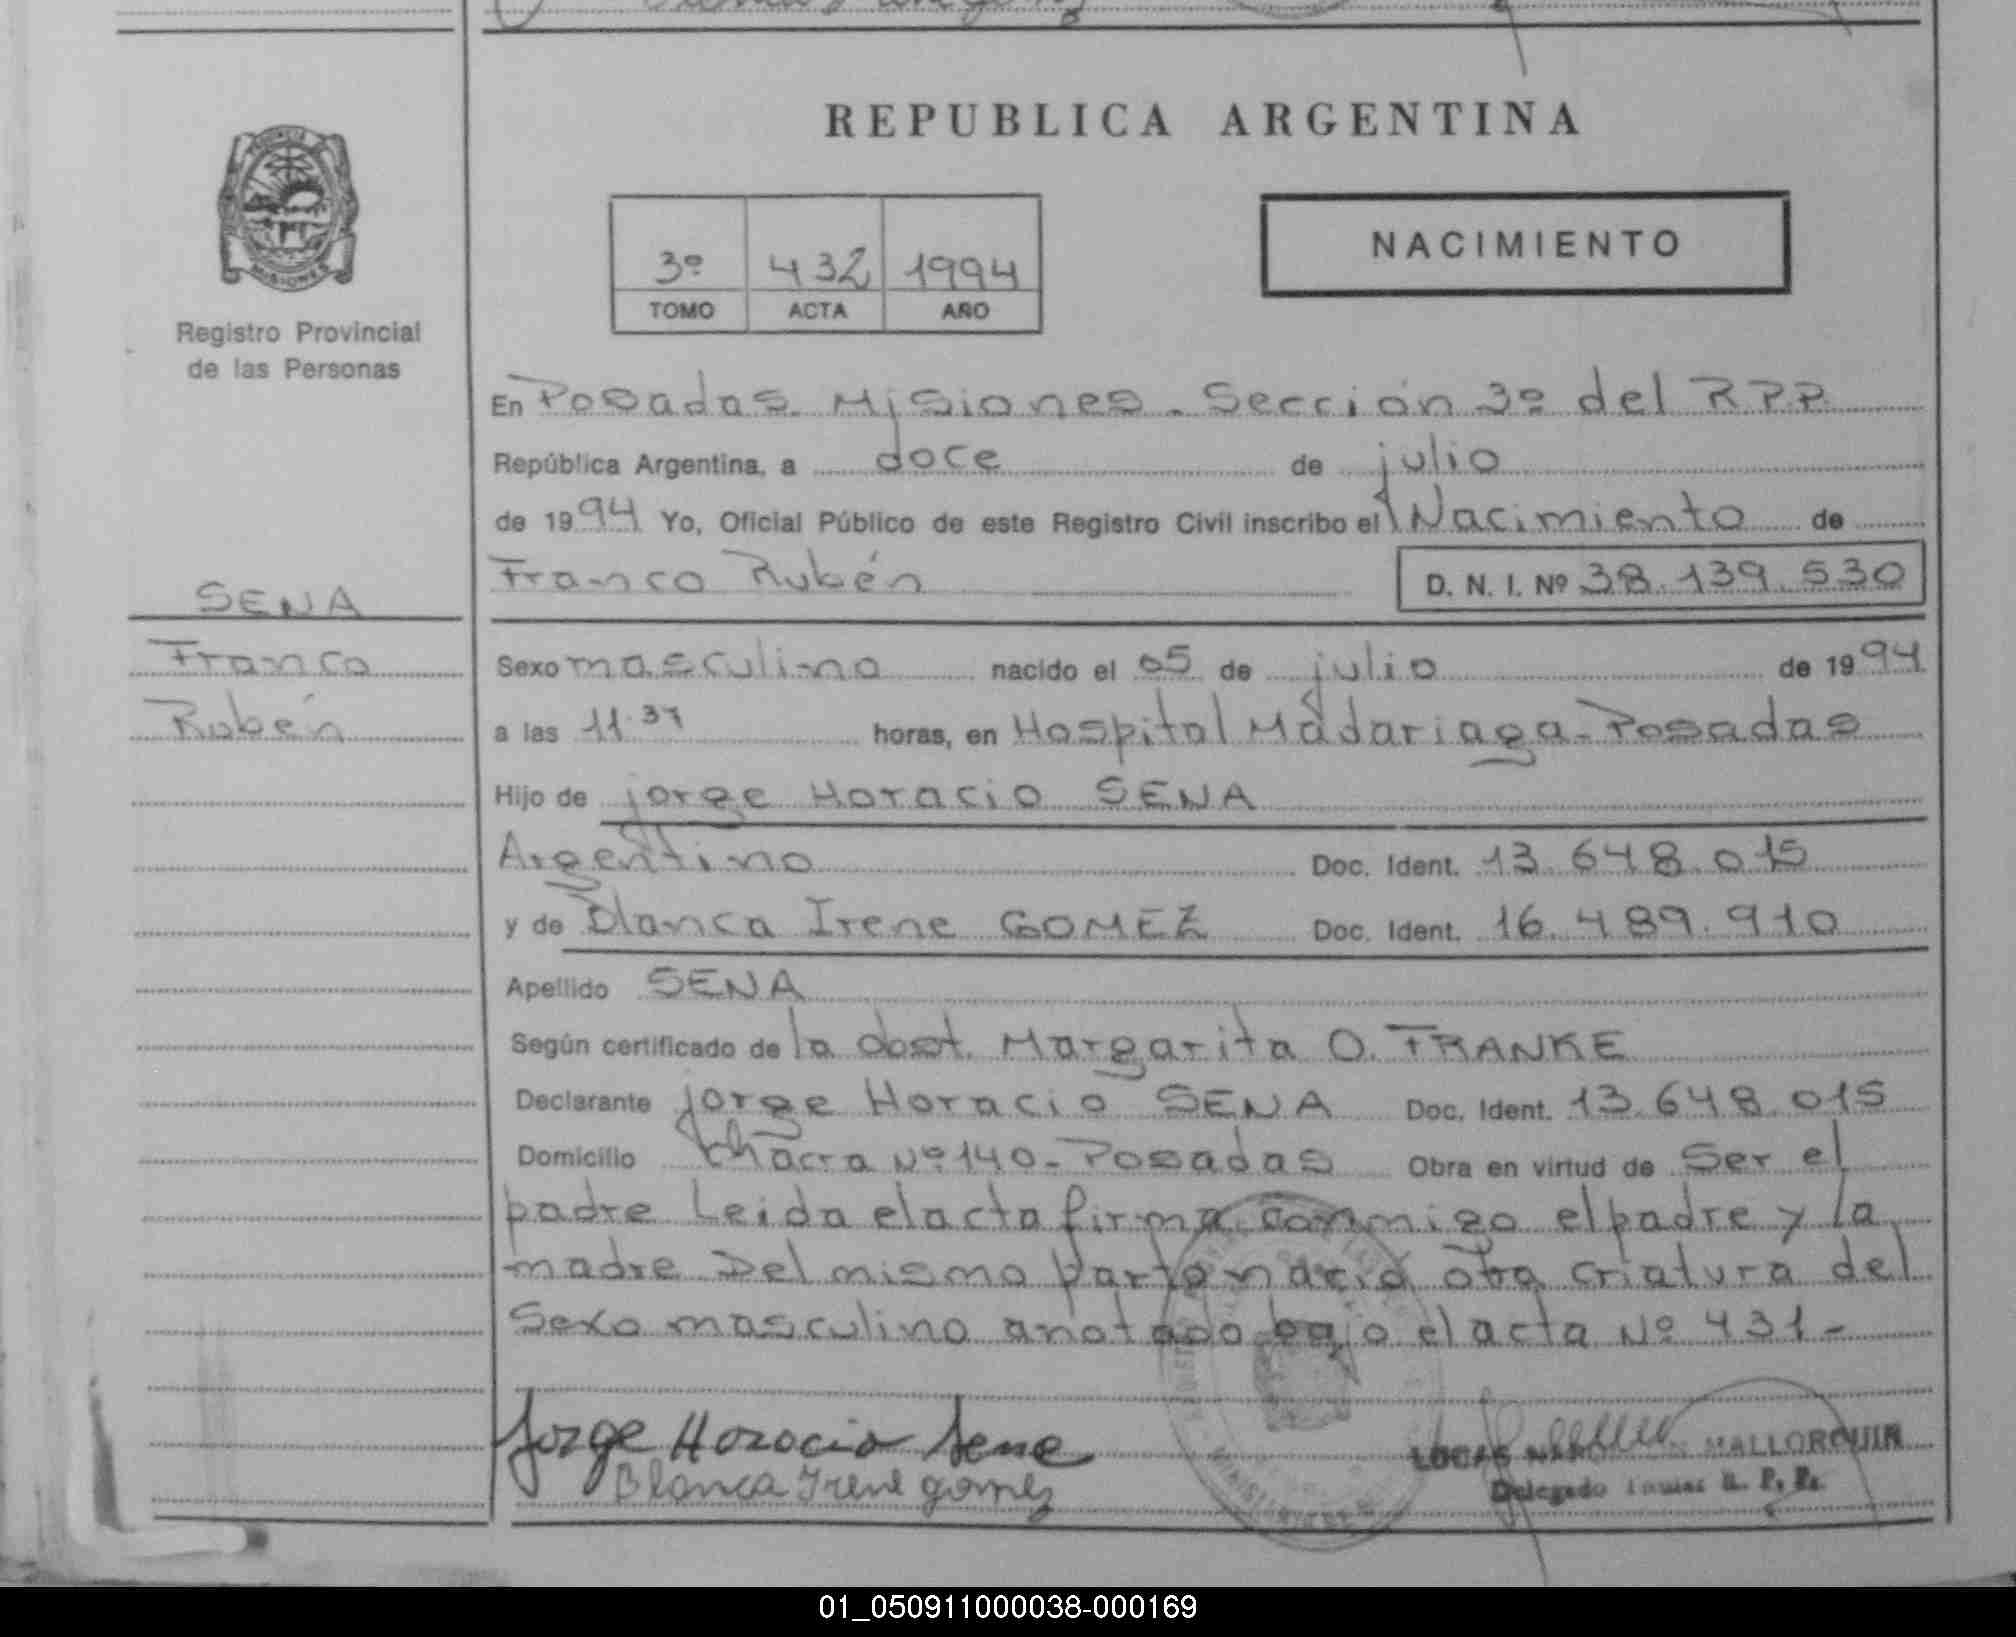 REPUBLICA ARGENTINA
NACIMIENTO
3º 432 1994
TOMO ACTA AÑO
Registro Provincial
de las Personas
En Posadas Misiones. Sección 3º del RPP.
República Argentina, a doce de julio
de 1994 Yo, Oficial Público de este Registro Civil inscribo el Nacimiento de
Franco Rubén D. N. I. Nº 38.139.530
SENA
Franco
Rubén
Sexo masculino nacido el 05 de julio de 1994
a las 11.37 horas, en Hospital Madariaga-Posadas
Hijo de jorge Horacio SENA
Argentino Doc. Ident. 13.648.015
y de Blanca Irene GOMEZ Doc. Ident. 16.489.910
Apellido SENA
Según certificado de la obst. Margarita O. FRANKE
Declarante jorge Horacio SENA Doc. Ident. 13.648.015
Domicilio Chacra Nº 140-Posadas Obra en virtud de Ser el
padre Leida el acta firma conmigo el padre y la
madre Del mismo parto nació otra criatura del
Sexo masculino anotado bajo el acta Nº 431-
Jorge Horacio Sena
Blanca Irene gomez
LUCAS MALLORQUIN
Delegado R. P. P.
01_050911000038-000169